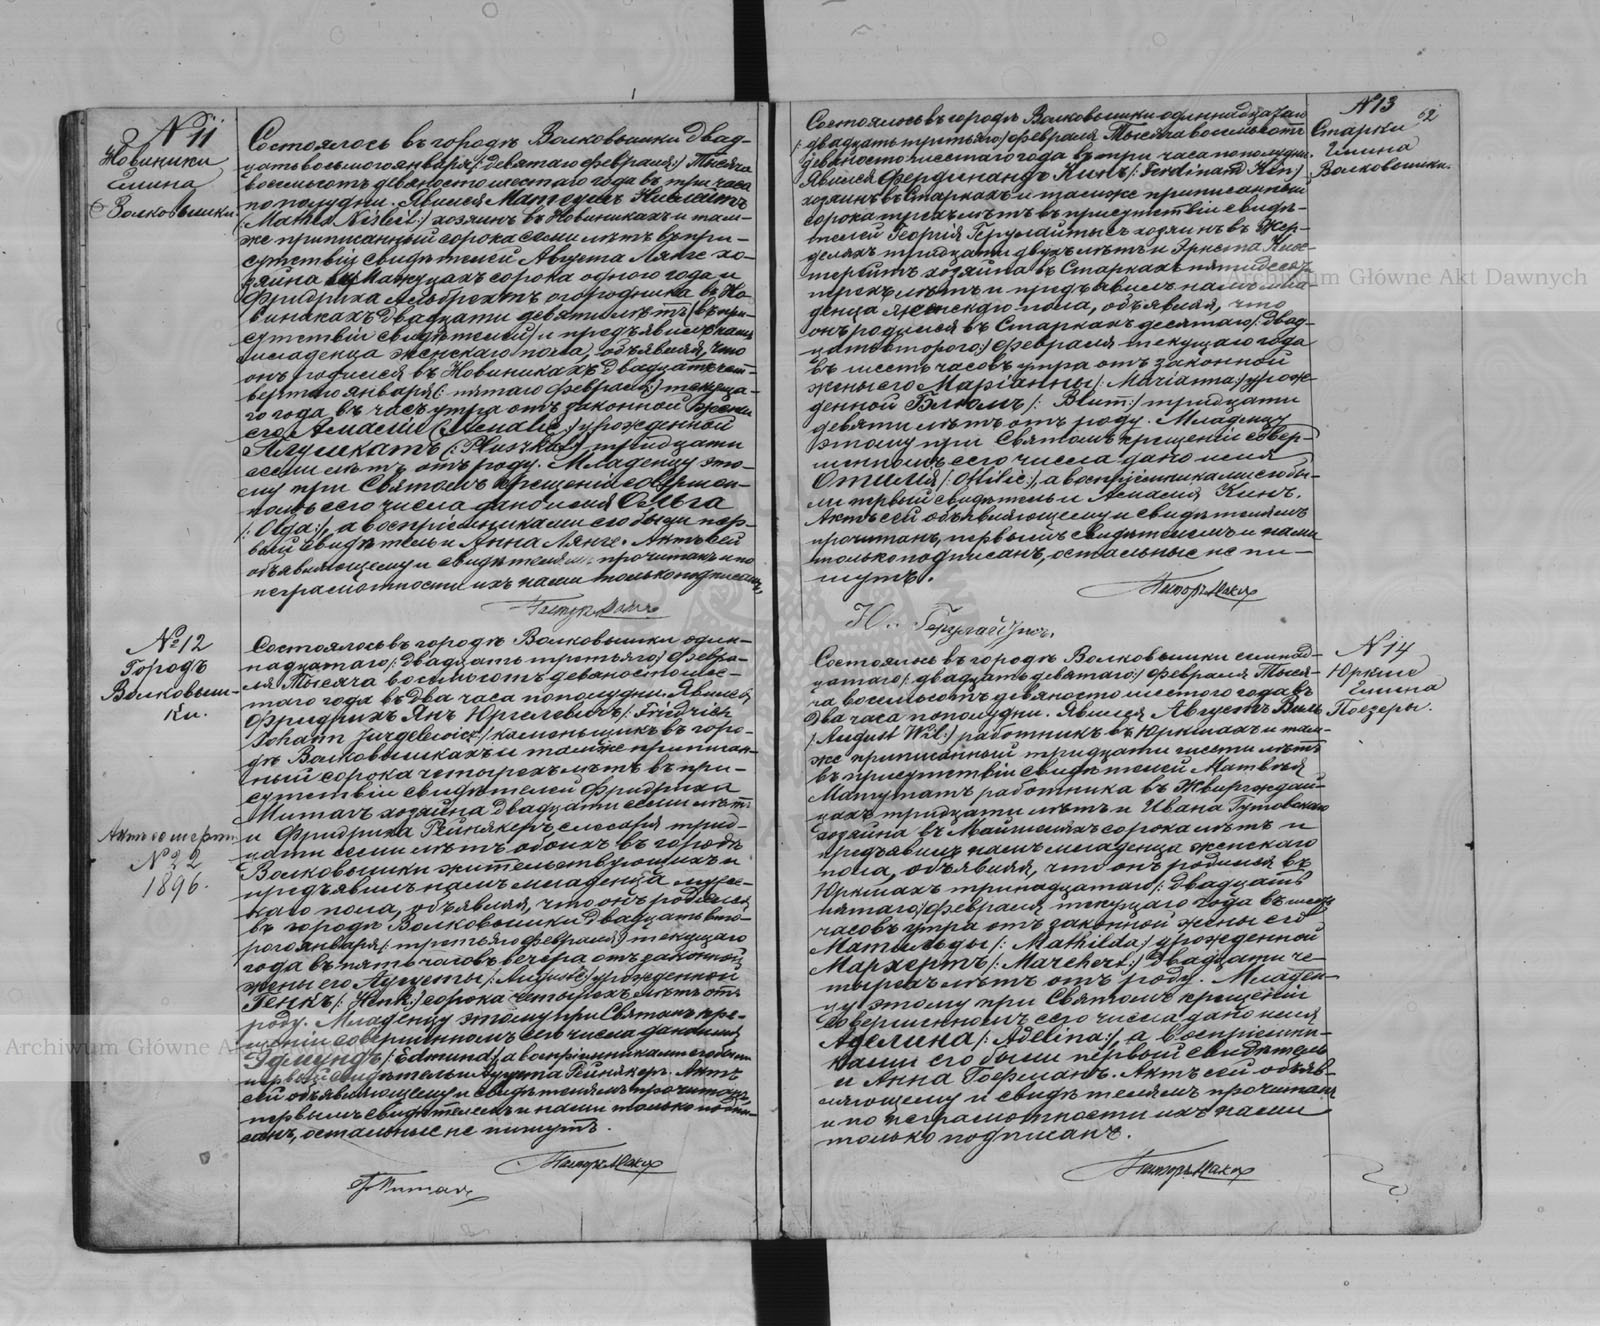 № 11
Новиники
Гмина
Волковышки
Состоялось въ городѣ Волковышки двад-
цать восьмого января /: девятаго февраля :/ Тысяча
восемьсотъ девяносто шестаго года въ три часа
по полудни. Явился Матеушъ Нислейтъ
/: Mateus Nisleit :/ хозяинъ въ Новиникахъ и там-
же приписанный сорока семи лѣтъ въ при-
сутствіи свидѣтелей Августа Лянге хо-
зяина въ сорока одного года и
Фридриха огородника въ Но-
виникахъ двадцати девяти лѣтъ /: въ при-
сутствіи свидѣтелей :/ и предъявилъ намъ
младенца женскаго пола, объявляя, что
онъ родился въ Новиникахъ двадцать чет-
вертаго января /: пятаго февраля :/ текуща-
го года въ часъ утра отъ законной жены
его Амаліи /: Amalie :/ урожденной
Плушкатъ /: Pluszkat :/ тридцати
семи лѣтъ отъ роду. Младенцу это-
му при Святомъ крещеніи совершен-
номъ сего числа дано имя Ольга
/: Olga :/, а воспріемниками его были пер-
вый свидѣтель и Анна Лянге. Актъ сей
объявляющему и свидѣтелямъ прочитанъ и по
неграмотности ихъ нами только подписанъ.
Пасторъ
№ 12
Городъ
Волковыш-
ки.
Актъ о смерти
№ 22
1896.
Состоялось въ городѣ Волковышки одинн-
надцатаго /: двадцать третьяго :/ февра-
ля Тысяча восемьсотъ девяносто шес-
таго года въ два часа пополудни. Явился
Фридрихъ Янъ Юргелевичъ /: Friedrich
Johann Jurgelewicz :/ каменьщикъ въ горо-
дѣ Волковышкахъ и тамже приписан-
ный сорока четырехъ лѣтъ въ при-
сутствіи свидѣтелей Фридриха
Митатъ хозяина двадцати семи лѣтъ
и Фридриха Рейнякеръ слесаря трид-
цати семи лѣтъ обоихъ въ городѣ
Волковышки жительствующихъ и
предъявилъ намъ младенца муже-
скаго пола, объявляя, что онъ родился
въ городѣ Волковышки двадцать вто-
рого января /: третьяго февраля :/ текущаго
года въ пять часовъ вечера отъ законной
жены его Августы /: Auguste :/ урожденной
Генкъ /: Henk :/ сорока четырехъ лѣтъ отъ
роду. Младенцу этому при Святомъ кре-
щеніи совершенномъ сего числа дано имя
Эдмундъ /: Edmund :/, а воспріемниками его были
первый свидѣтель и Августа Рейнякеръ. Актъ
сей объявляющему и свидѣтелямъ прочитанъ,
первымъ свидѣтелемъ и нами только подпи-
санъ, остальные не пишутъ.
Пасторъ
№ 13
62
Старки
Гмина
Волковышки.
Состоялось въ городѣ Волковышки одиннадцатаго
/: двадцать третьяго :/ февраля Тысяча восемьсотъ
девяносто шестаго года въ три часа пополудни.
Явился Фердинандъ Кинъ /: Ferdinand Kin :/
хозяинъ въ Старкахъ и тамже приписанный
сорока трехъ лѣтъ въ присутствіи свидѣ-
телей Георгія Гергулайтисъ хозяинъ въ Жер-
деляхъ тридцати двухъ лѣтъ и Эрнеста
хозяина въ Старкахъ пятидесяти
трехъ лѣтъ и предъявилъ намъ мла-
денца женскаго пола, объявляя, что
онъ родился въ Старкахъ десятаго /: двад-
цать второго :/ февраля текущаго года
въ шесть часовъ утра отъ законной
жены его Маріанны /: Marianna :/ урож-
денной Блюмъ /: Blum :/ тридцати
девяти лѣтъ отъ роду. Младенцу
этому при Святомъ крещеніи совер-
шенномъ сего числа дано имя
Отилія /: Ottilie :/, а воспріемниками его бы-
ли первый свидѣтель и Амалія Кинъ.
Актъ сей объявляющему и свидѣтелямъ
прочитанъ, первымъ свидѣтелемъ и нами
только подписанъ, остальные не пи-
шутъ.
Пасторъ
№ 14
Юркше
Гмина
Поезеры.
Состоялось въ городѣ Волковышки семнад-
цатаго /: двадцать девятаго :/ февраля Тыся-
ча восемьсотъ девяносто шестого года въ
два часа пополудни. Явился Августъ Виль
/: August Wil :/ работникъ въ Юркшахъ и там-
же приписанный тридцати шести лѣтъ
въ присутствіи свидѣтелей Матвѣя
Матутатъ работника въ Жвиргждай-
цахъ тридцати лѣтъ и Ивана Гутовскаго
хозяина въ сорока лѣтъ и
предъявилъ намъ младенца женскаго
пола, объявляя, что онъ родился въ
Юркшахъ тринадцатаго /: двадцать
пятаго :/ февраля текущаго года въ шесть
часовъ утра отъ законной жены его
Матильды /: Mathilda :/ урожденной
Мархертъ /: Marchert :/ двадцати че-
тырехъ лѣтъ отъ роду. Младен-
цу этому при Святомъ крещеніи
совершенномъ сего числа дано имя
Аделина /: Adelina :/, а воспріемни-
ками его были первый свидѣтель
и Анна Гофманъ. Актъ сей объяв-
ляющему и свидѣтелямъ прочитанъ
и по неграмотности ихъ нами
только подписанъ.
Пасторъ
Archiwum Główne Akt Dawnych